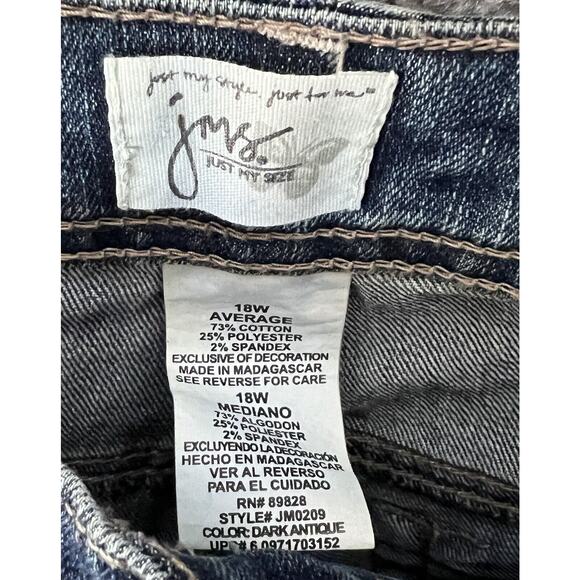 just my style. just for me™
jms.
JUST MY SIZE
18W
AVERAGE
73% COTTON
25% POLYESTER
2% SPANDEX
EXCLUSIVE OF DECORATION
MADE IN MADAGASCAR
SEE REVERSE FOR CARE
18W
MEDIANO
73% ALGODON
25% POLIESTER
2% SPANDEX
EXCLUYENDO LA DECORACIÓN
HECHO EN MADAGASCAR
VER AL REVERSO
PARA EL CUIDADO
RN# 89828
STYLE# JM0209
COLOR: DARK ANTIQUE
UPC# 6 0971703152